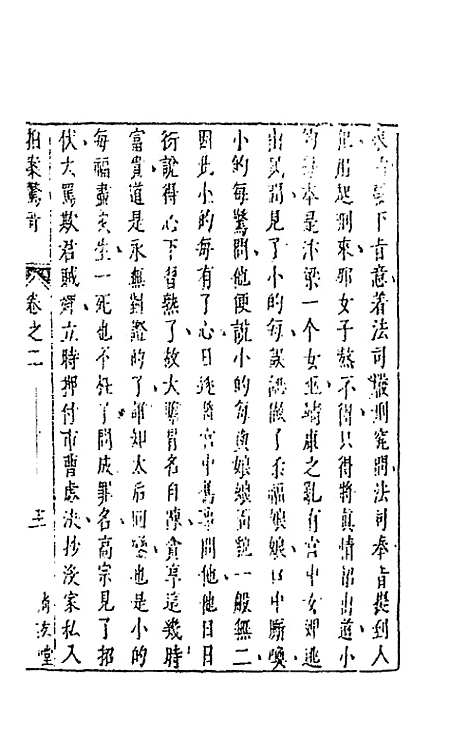 來消下旨意着法司嚴刑究問法司奉旨提到人
犯用起刑來那女子熬不得只得將眞情招出道小
的每本是汴梁一个女巫靖康之亂有官中女婢逃
出民間見了小的每誤認做了柔福娘娘口中厮喚
小的每驚問他便說小的每與娘娘面貌一般無二
因此小的每有了心日逐將宮中舊事問他他日日
衍說得心下習熟了故大膽冒名自陳貪享這幾時
富貴道是永無對證的了誰知太后回鑾也是小的
每福盡灾生一死也不枉了問成罪名高宗見了招
伏大罵欺君賊婢立時押付市曹處決抄沒家私入
拍案驚奇
卷之二
三
尚友堂